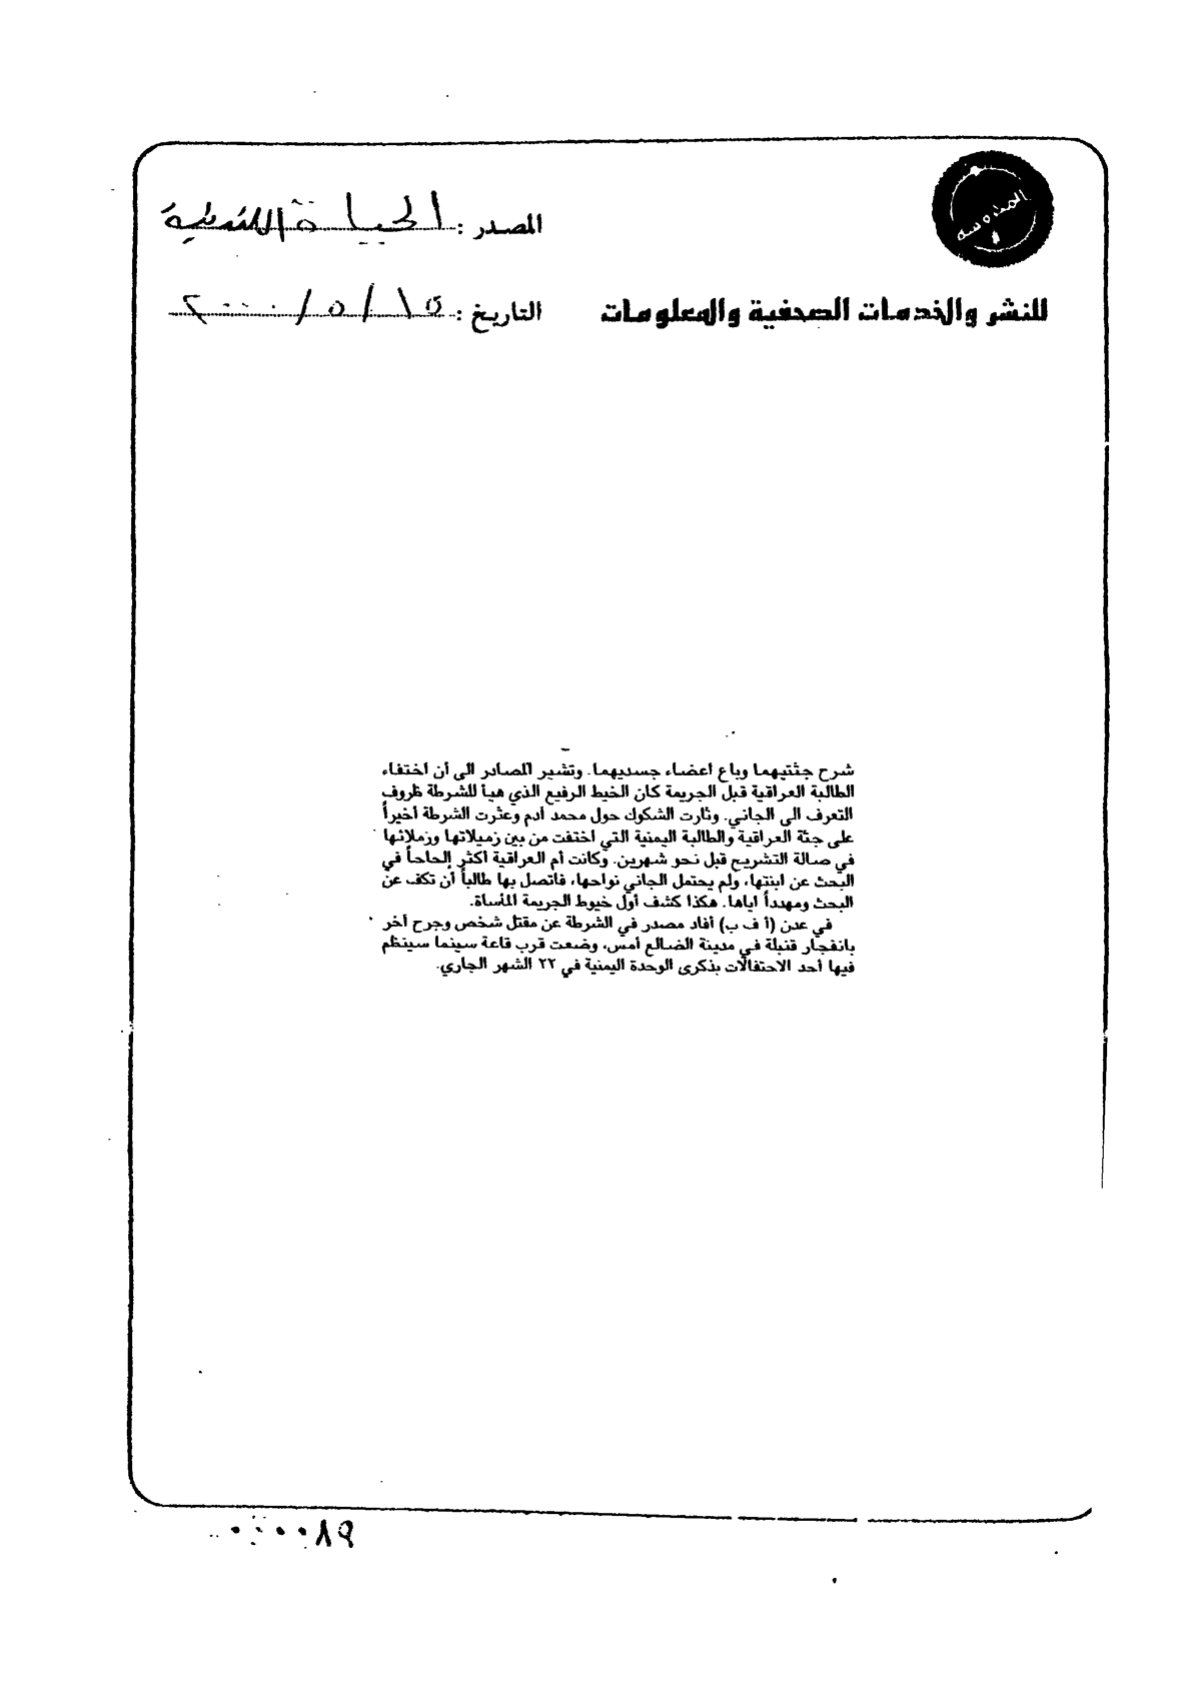 المصدر : الحياة اللندنية
للنشر والخدمات الصحفية والمعلومات
التاريخ : ١٥ / ٥ / ٢٠٠٠
شرح جثتيهما وباع أعضاء جسديهما. وتشير المصادر الى أن اختفاء
الطالبة العراقية قبل الجريمة كان الخيط الرفيع الذي هيأ للشرطة ظروف
التعرف الى الجاني. وثارت الشكوك حول محمد آدم وعثرت الشرطة أخيراً
على جثة العراقية والطالبة اليمنية التي اختفت من بين زميلاتها وزملائها
في صالة التشريح قبل نحو شهرين. وكانت أم العراقية أكثر إلحاحاً في
البحث عن ابنتها، ولم يحتمل الجاني نواحها، فاتصل بها طالباً أن تكف عن
البحث ومهدداً اياها. هكذا كشف أول خيوط الجريمة المأساة.
في عدن (أ ف ب) أفاد مصدر في الشرطة عن مقتل شخص وجرح آخر
بانفجار قنبلة في مدينة الضالع أمس، وضعت قرب قاعة سينما سينظم
فيها أحد الاحتفالات بذكرى الوحدة اليمنية في ٢٢ الشهر الجاري.